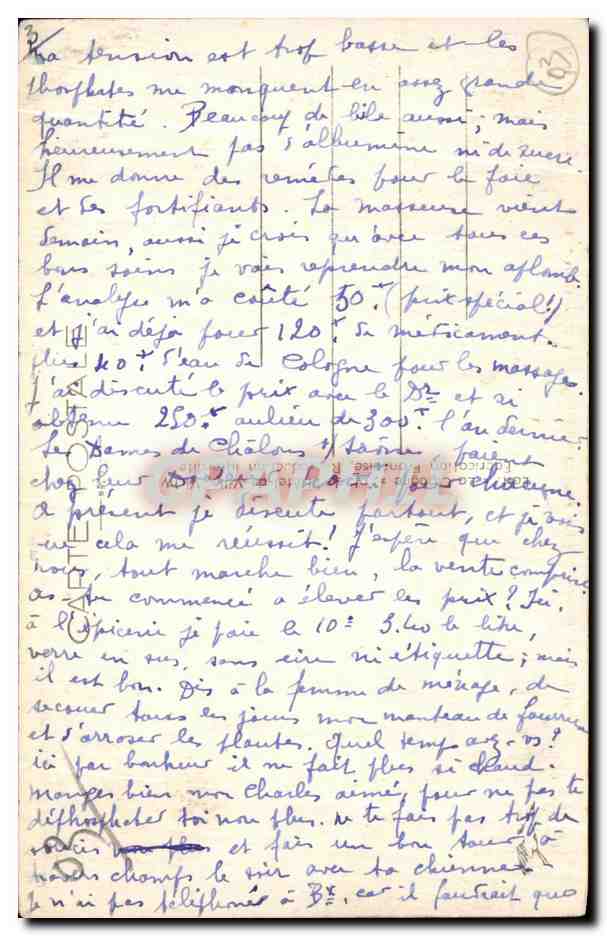 3
03
La tension est trop basse et les
phosphates me manquent en assez grande
quantité. Beaucoup de bile aussi; mais
heureusement pas d'albumine ni de sucre.
Il me donne des remèdes pour le foie
et des fortifiants. La masseuse vient
demain, aussi je crois qu'avec tous ces
bons soins je vais reprendre mon aplomb.
L'analyse m'a coûté 50.f (prix spécial!)
et j'ai déjà pour 120.f de médicament.
plus 40.f d'eau de Cologne pour les massages.
J'ai discuté le prix avec le Dr et ai
obtenu 250.f au lieu de 300.f l'an dernier.
Les Dames de Châlons s/ Saône, paient
chez leur chacune.
A présent je discute partout, et je vois
que cela me réussit! J'espère que chez
nous, tout marche bien, la vente comprise.
as-tu commencé à élever les prix? Ici,
à l'épicerie je paie le 10° 3.40 le litre,
verre en sus, sans cire ni étiquette; mais
il est bon. Dis à la femme de ménage, de
secouer tous les jours mon manteau de fourrure
et d'arroser les plantes. Quel temps avez-vs?
ici par bonheur il ne fait plus si chaud.
Manges bien mon Charles aimé, pour ne pas te
déphosphater toi non plus. ne te fais pas trop de
soucis et fais un bon tour à
travers champs le soir avec ta chienne.
Je n'ai pas téléphoné à Bx, car il faudrait que
CARTE POSTALE
CPARAMA
03